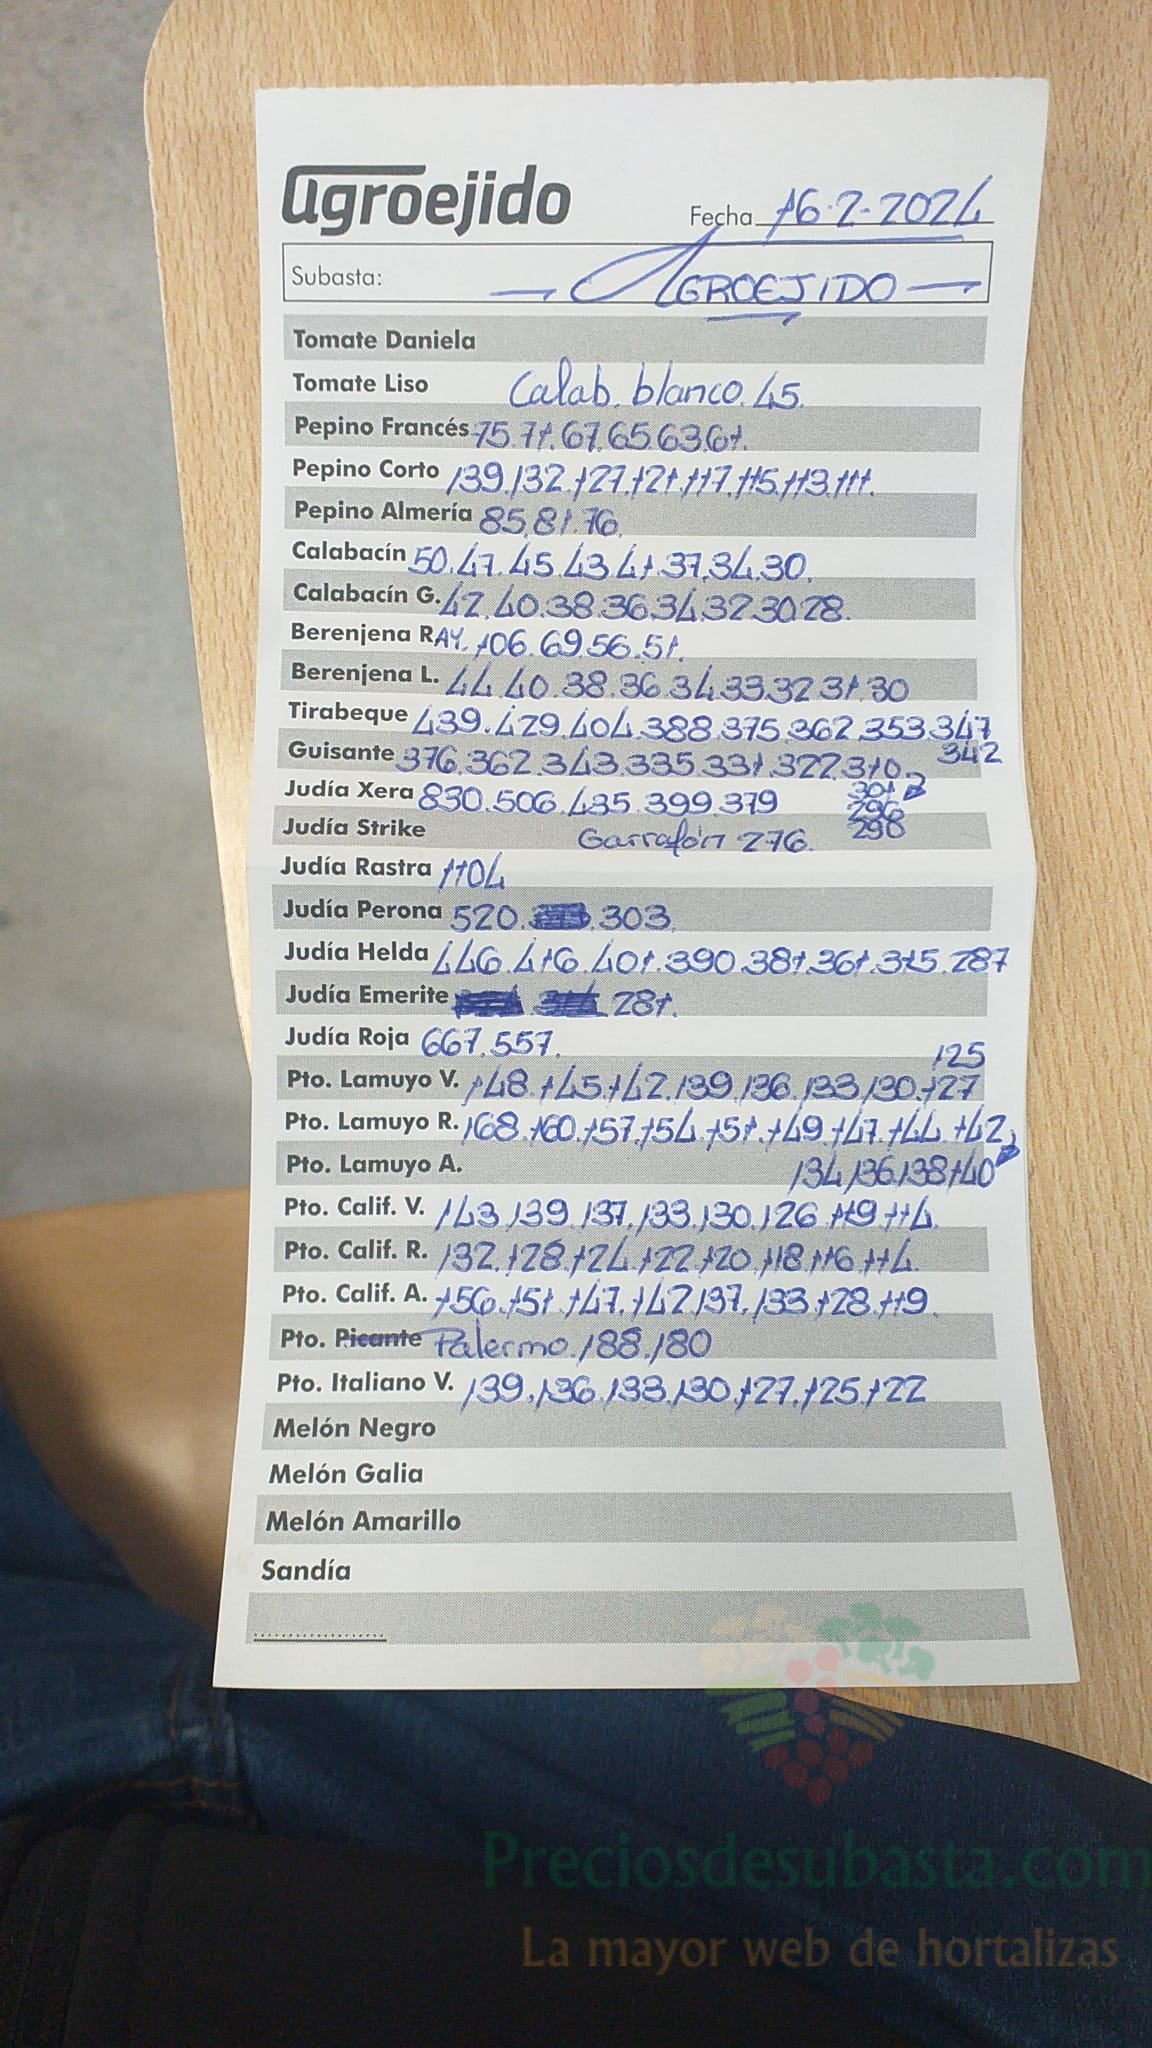 agroejido
Fecha 16-2-2024
Subasta: AGROEJIDO
Tomate Daniela
Tomate Liso Calab. blanco. 45.
Pepino Francés 75.71.67.65.63.61.
Pepino Corto 139.132.127.121.117.115.113.111.
Pepino Almería 85.81.76.
Calabacín 50.47.45.43.41.37.34.30.
Calabacín G. 42.40.38.36.34.32.30.28.
Berenjena RAY. 106.69.56.51.
Berenjena L. 44.40.38.36.34.33.32.31.30
Tirabeque 439.429.404.388.375.362.353.347
342
Guisante 376.362.343.335.331.322.310.
301
296
290
Judía Xera 830.506.435.399.379
Judía Strike Garrafón 276.
Judía Rastra 1104
Judía Perona 520. 303.
Judía Helda 446.416.401.390.381.361.315.287
Judía Emerite 281.
Judía Roja 667.557.
125
Pto. Lamuyo V. 148.145.142.139.136.133.130.127
Pto. Lamuyo R. 168.160.157.154.151.149.147.144.142
Pto. Lamuyo A. 134.136.138.140
Pto. Calif. V. 143.139.137.133.130.126.119.114.
Pto. Calif. R. 132.128.124.122.120.118.116.114.
Pto. Calif. A. 156.151.147.142.137.133.128.119.
Pto. Picante Palermo.188.180
Pto. Italiano V. 139.136.133.130.127.125.122
Melón Negro
Melón Galia
Melón Amarillo
Sandía
Preciosdesubasta.com
La mayor web de hortalizas